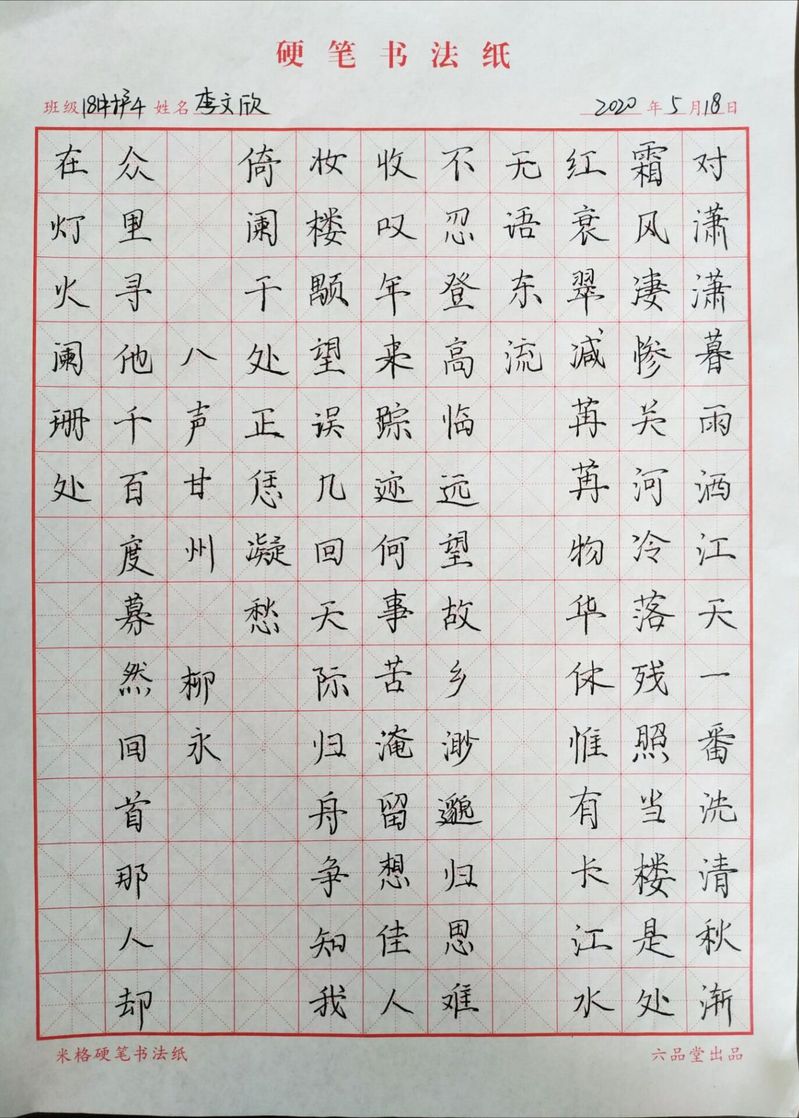 硬笔书法纸
班级 18中护4 姓名 李文欣 2020年5月18日
对潇潇暮雨洒江天一番洗清秋渐
霜风凄惨关河冷落残照当楼是处
红衰翠减苒苒物华休惟有长江水
无语东流
不忍登高临远望故乡渺邈归思难
收叹年来踪迹何事苦淹留想佳人
妆楼颙望误几回天际归舟争知我
倚阑干处正恁凝愁
八声甘州 柳永
众里寻他千百度蓦然回首那人却
在灯火阑珊处
米格硬笔书法纸 六品堂出品